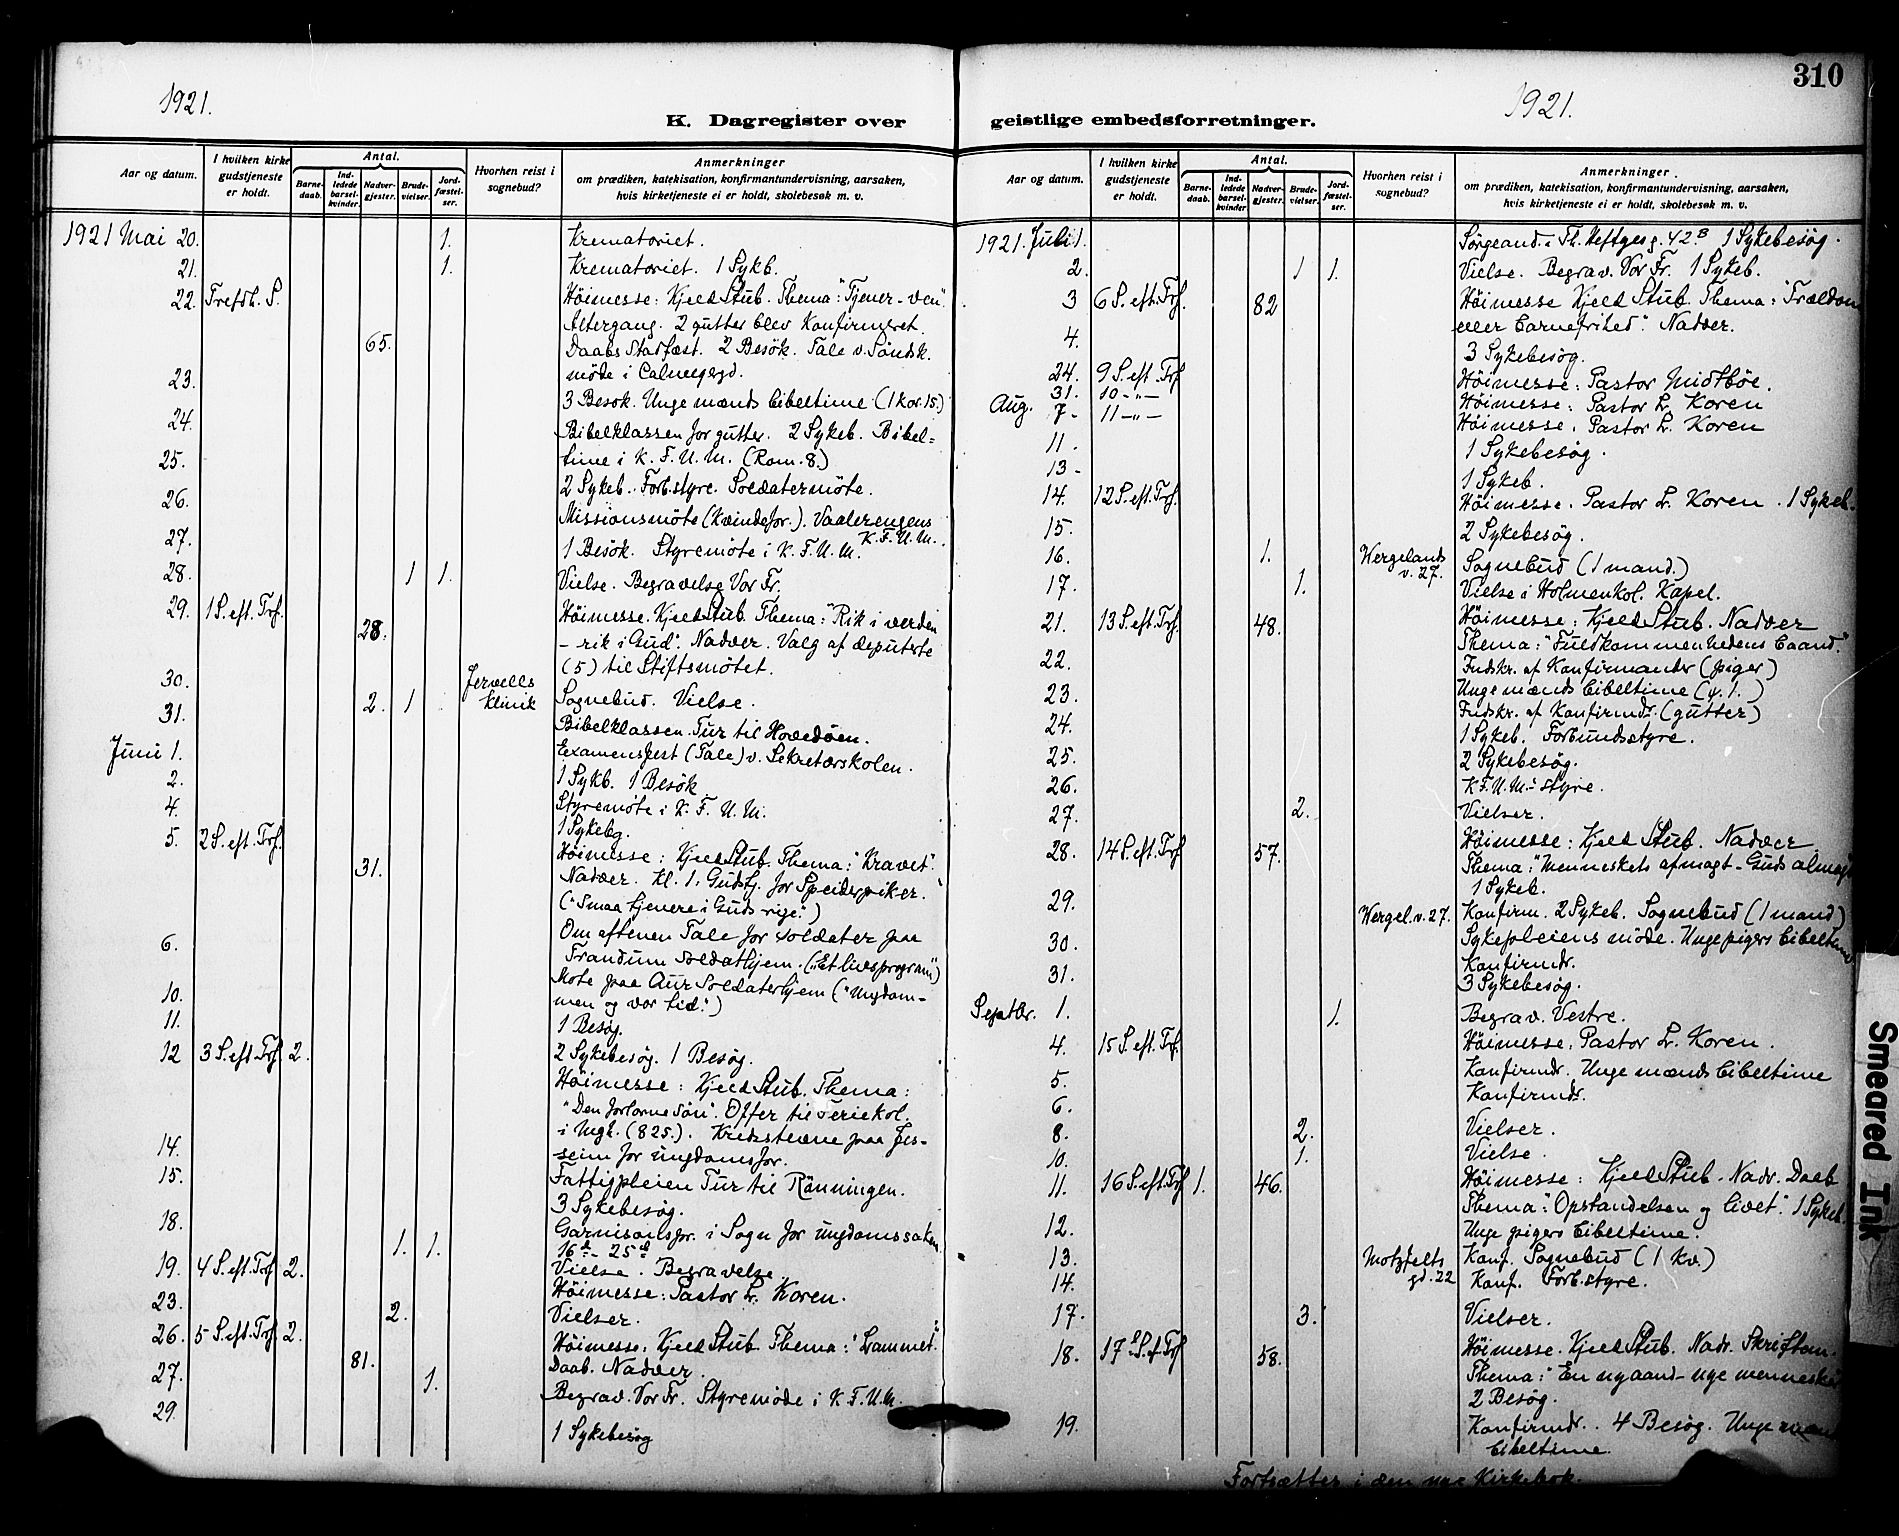 310
1921.
1921.
K. Dagregister over
geistlige embedsforretninger.
Aar og datum.
I hvilken kirke gudstjeneste er holdt.
Antal.
Barne-daab.
Ind-ledede barsel-kvinder.
Nadver-gjester.
Brude-vielser.
Jord-fæstel-ser.
Hvorhen reist i sognebud?
Anmerkninger
om prædiken, katekisation, konfirmantundervisning, aarsaken,
hvis kirketjeneste ei er holdt, skolebesøk m. v.
1921 Mai 20. 1. Krematoriet.
21. 1. Krematoriet. 1 Sykb.
22. Trefdh. S. Höimesse: Kjeld Stub. Thema: "Tjener - ven"
Altergang. 2 gutter blev Konfirmeret.
65. Daabs Stadfæst. 2 Besök. Tale v. Söndsk.
möde i Calmeyergd.
23. 3 Besök. Unge mænds bibeltime (1 Kor. 15.)
24. Bibelklassen for gutter. 2 Sykeb. Bibel=
time i K. F. U. M. (Rom. 8.)
25. 2 Sykeb. Forb.styre. Soldatermöte.
26. Missionsmöte (Kvindefor.). Vaalerengens
K. F. U. M.
27. 1 Besök. Styremöte i K. F. U. M.
28. 1 1. Vielse. Begravelse Vor Fr.
29. 1 S. eft. Trf. 28. Höimesse. Kjeld Stub. Thema: "Rik i verden
- rik i Gud". Nadver. Valg af deputerte
(5) til Stiftsmötet.
30. 2. 1 Jervells Klinik Sognebud. Vielse.
31. Bibelklassen. Tur til Hovedöen.
Juni 1. Examensfest (Tale) v. Sekretærskolen.
2. 1 Sykb. 1 Besök
4. Styremöte i K. F. U. M.
1 Sykebg.
5. 2 S. eft. Trf. 31. Höimesse: Kjeld Stub. Thema: "Kravet".
Nadver. Kl. 1. Gudstj. for Speiderpiker.
("Smaa tjenere i Guds rige.")
6. Om aftenen Tale for soldater paa
Trandum Soldathjem. ("Et livsprogram")
Möte paa Aur Soldaterhjem ("Ungdom-
men og vor tid.")
10. 1 Besøg.
11. 2 Sykebesøg. 1 Besøg.
12 3 S. eft. Trf. 2. Höimesse: Kjeld Stub. Thema:
"Den fortorne sön". Offer til Feriekol.
i Mgh. (825.). Kredsstevne paa Jes-
seim for ungdomsfor.
14. Fattigpleien Tur til Rönningen.
15. 3 Sykebesøg.
Garnisonsfor. i Sogn for ungdomssaken
16de - 25de
18. 1. 1. Vielse. Begravelse.
19. 4 S. eft. Trf. 2. Höimesse: Pastor Lr. Koren.
23. 2. Vielser.
26. 5 S. eft. Trf. 2. 81. Höimesse: Kjeld Stub. Thema: "Lammet".
Daab. Nadver.
27. 1. Begrav. Vor Fr. Styremöde i K. F. U. M.
29. 1 Sykebesøg
Aar og datum.
I hvilken kirke gudstjeneste er holdt.
Antal.
Barne-daab.
Ind-ledede barsel-kvinder
Nadver-gjester.
Brude-vielser.
Jord-fæstel-ser.
Hvorhen reist i sognebud?
Anmerkninger.
om prædiken, katekisation, konfirmantundervisning, aarsaken,
hvis kirketjeneste ei er holdt, skolebesøk m. v.
1921. Juli 1. Sørgeand. i Th. Heftyesg. 42.B 1 Sykebesøg.
2. 1 1. Vielse. Begrav. Vor Fr. 1 Sykeb.
3 6 S. eft. Trf. 82 Höimesse Kjeld Stub. Thema: "Trældom
eller barnefrihed". Nadver.
4. 3 Sykebesøg.
24. 9 S. eft. Trf. Höimesse: Pastor Midtböe.
31. 10 -"- Höimesse: Pastor Lr. Koren
Aug. 7 - 11 -"- Höimesse: Pastor Lr. Koren
11. 1 Sykebesøg.
13 - 1 Sykeb.
14. 12 S. eft. Trf. Höimesse. Pastor Lr. Koren. 1 Sykeb.
15. 2 Sykebesøg.
16. 1. Wergelands v. 27. Sognebud (1 mand.)
17. 1. Vielse i Holmenkol. Kapel.
21. 13 S. eft. Trf. 48. Höimesse: Kjeld Stub. Nadver
Thema: "Fuldkommenhedens baand."
22. Indskr. af Konfirmander (piger)
Unge mænds bibeltime (
23. Indskr. af Konfirmdr. (gutter)
24. 1 Sykeb. Forbundsstyre.
25. 2 Sykebesøg.
26. K. F. U. M.-styre.
27. 2. Vielser.
28. 14 S. eft. Trf. 57. Höimesse: Kjeld Stub. Nadver
Thema: "Menneskets afmagt - Guds almagt
1 Sykeb.
29. Wergel. v. 27. Konfirm. 2 Sykeb. Sognebud (1 mand)
30. Sykepleiens möde. Unge pigers bibeltime
Konfirmdr.
31. 3 Sykebesøg.
Septbr. 1. 1. Begrav. Vestre.
4. 15 S. eft. Trf. Höimesse: Pastor Lr. Koren.
5. Konfirmdr. Unge mænds bibeltime
6. Konfirmdr.
8. 2. Vielser.
10. 1. Vielse.
11. 16 S. eft. Trf 1. 46. Höimesse: Kjeld Stub. Nadv. Daab
Thema: "Opstandelsen og livet". 1 Sykeb.
12. Unge pigers bibeltime.
13. Motzfelts gd. 22 Konf. Sognebud (1 Kv.)
14. Konf. Forb.styre.
17. 3. Vielser.
18. 17 S. ef. Trf 58. Höimesse. Kjeld Stub. Nadv. Skriftem.
Thema: "En ny aand - nye mennesker
2 Besøg.
19. Konfirmdr. 4 Besøg. Unge mænds
bibeltime.
Fortsætter i den nye Kirkebok.
Smeared Ink